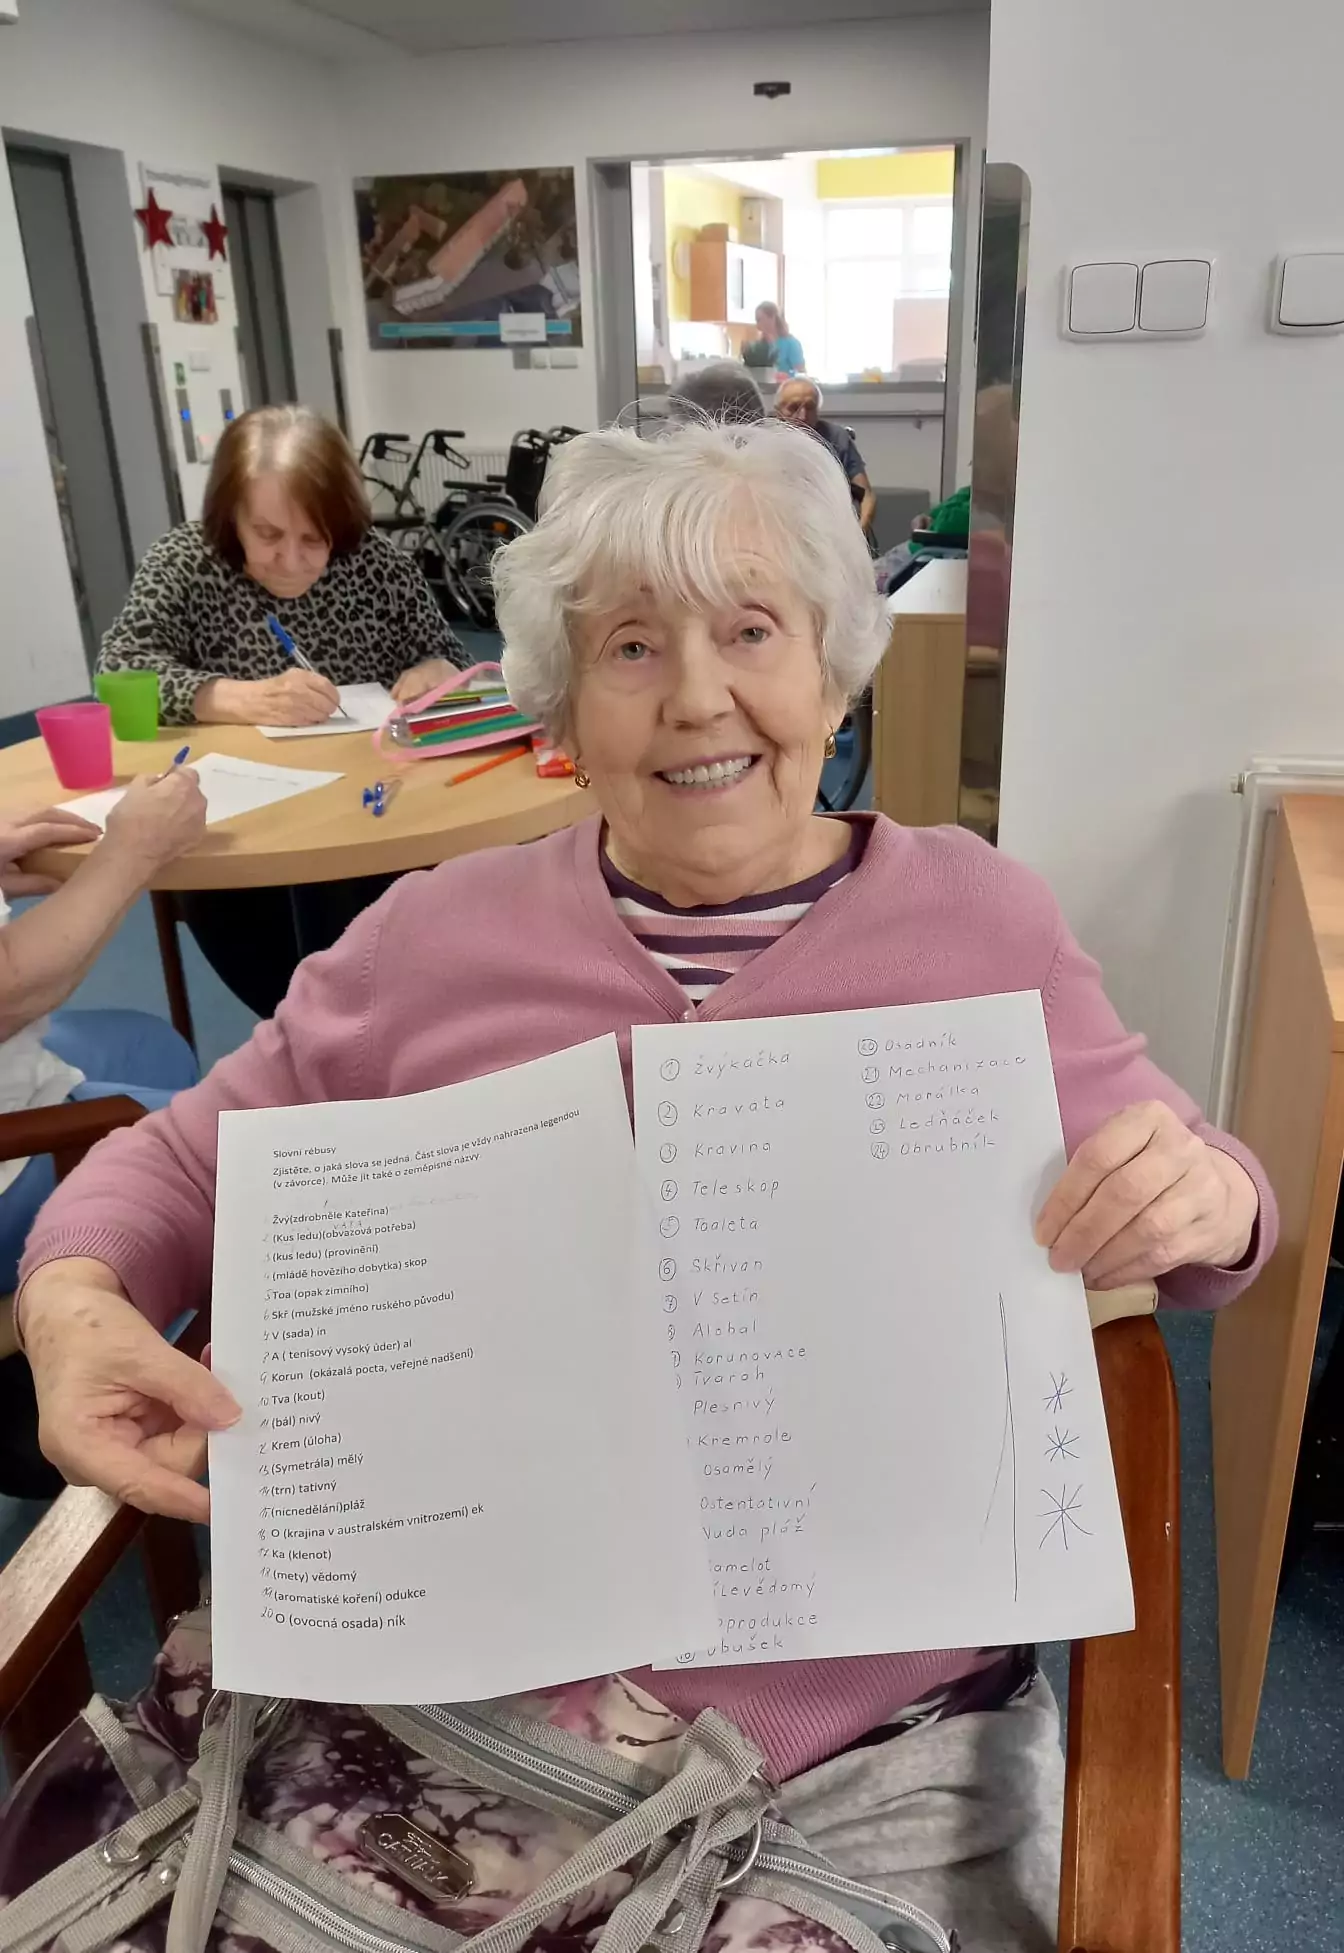 Slovní rébusy
Zjistěte, o jaká slova se jedná. Část slova je vždy nahrazena legendou
(v závorce). Může jít také o zeměpisné názvy.
Žvý(zdrobněle Kateřina)
VATA
2 (Kus ledu)(obvazová potřeba)
3 (kus ledu) (provinění)
4 (mládě hovězího dobytka) skop
5 Toa (opak zimního)
6 Skř (mužské jméno ruského původu)
V (sada) in
A ( tenisový vysoký úder) al
9 Korun (okázalá pocta, veřejné nadšení)
10 Tva (kout)
11 (bál) nivý
12 Krem (úloha)
13 (Symetrála) mělý
14 (trn) tativný
15 (nicnedělání)pláž
16 O (krajina v australském vnitrozemí) ek
17 Ka (klenot)
18 (mety) vědomý
19 (aromatiské koření) odukce
20 O (ovocná osada) ník
① Žvýkačka
② Kravata
③ Kravina
④ Teleskop
⑤ Toaleta
⑥ Skřivan
⑦ Vsetín
8) Alobal
Korunovace
Tvaroh
Plesnivý
Kremrole
Osamělý
Ostentativní
Nuda pláž
amelot
ílevědomý
produkce
Obušek
⑳ Osadník
㉑ Mechanizace
㉒ Morálka
Ledňáček
㉔ Obrubník